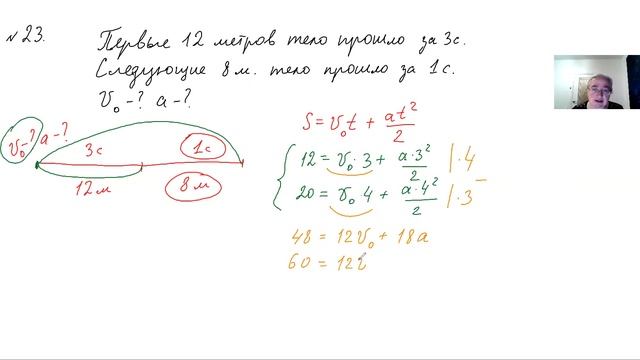 №23. Первые 12 метров тело прошло за 3с.
Следующие 8м. тело прошло за 1с.
V₀-? a-?
V₀-? a-?
3с
1с
12м
8м
S = V₀t + at²/2
12 = V₀·3 + a·3²/2 |·4
20 = V₀·4 + a·4²/2 |·3 −
48 = 12V₀ + 18a
60 = 12V